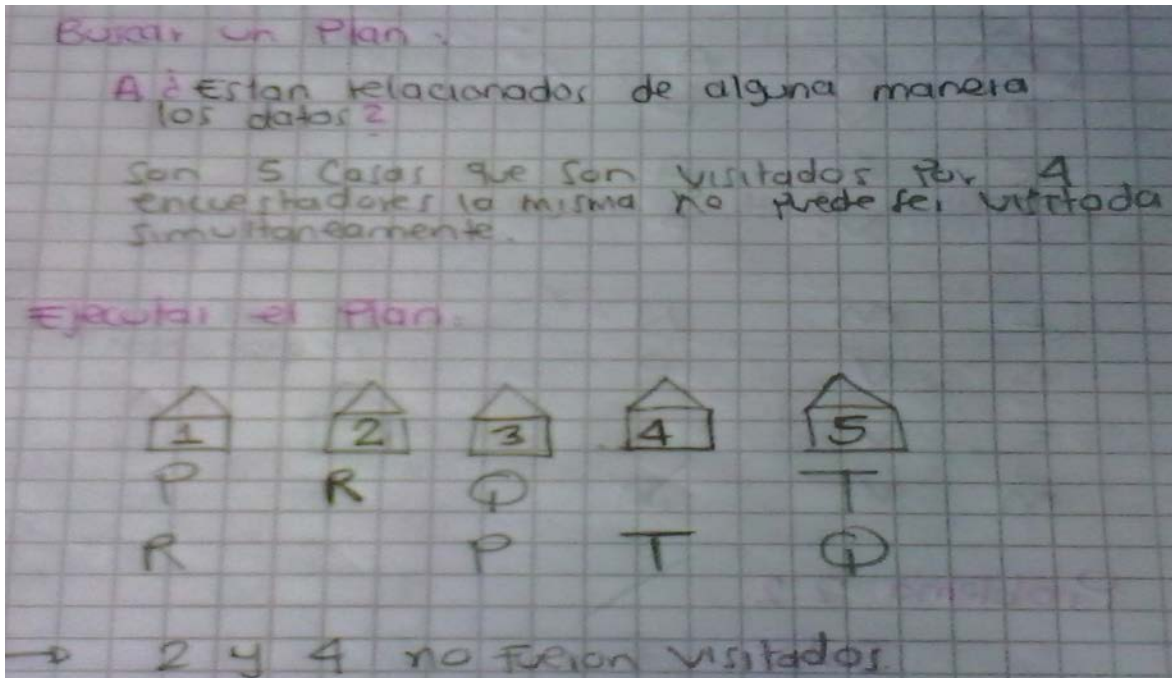 Buscar un Plan.
A ¿Estan relacionados de alguna manera
los datos?
Son 5 Casas que son visitados Por 4
encuestadores la misma no puede ser visitada
simultaneamente.
Ejecutar el Plan.
1 2 3 4 5
P R Q T
R P T Q
→ 2 y 4 no fueron visitados.